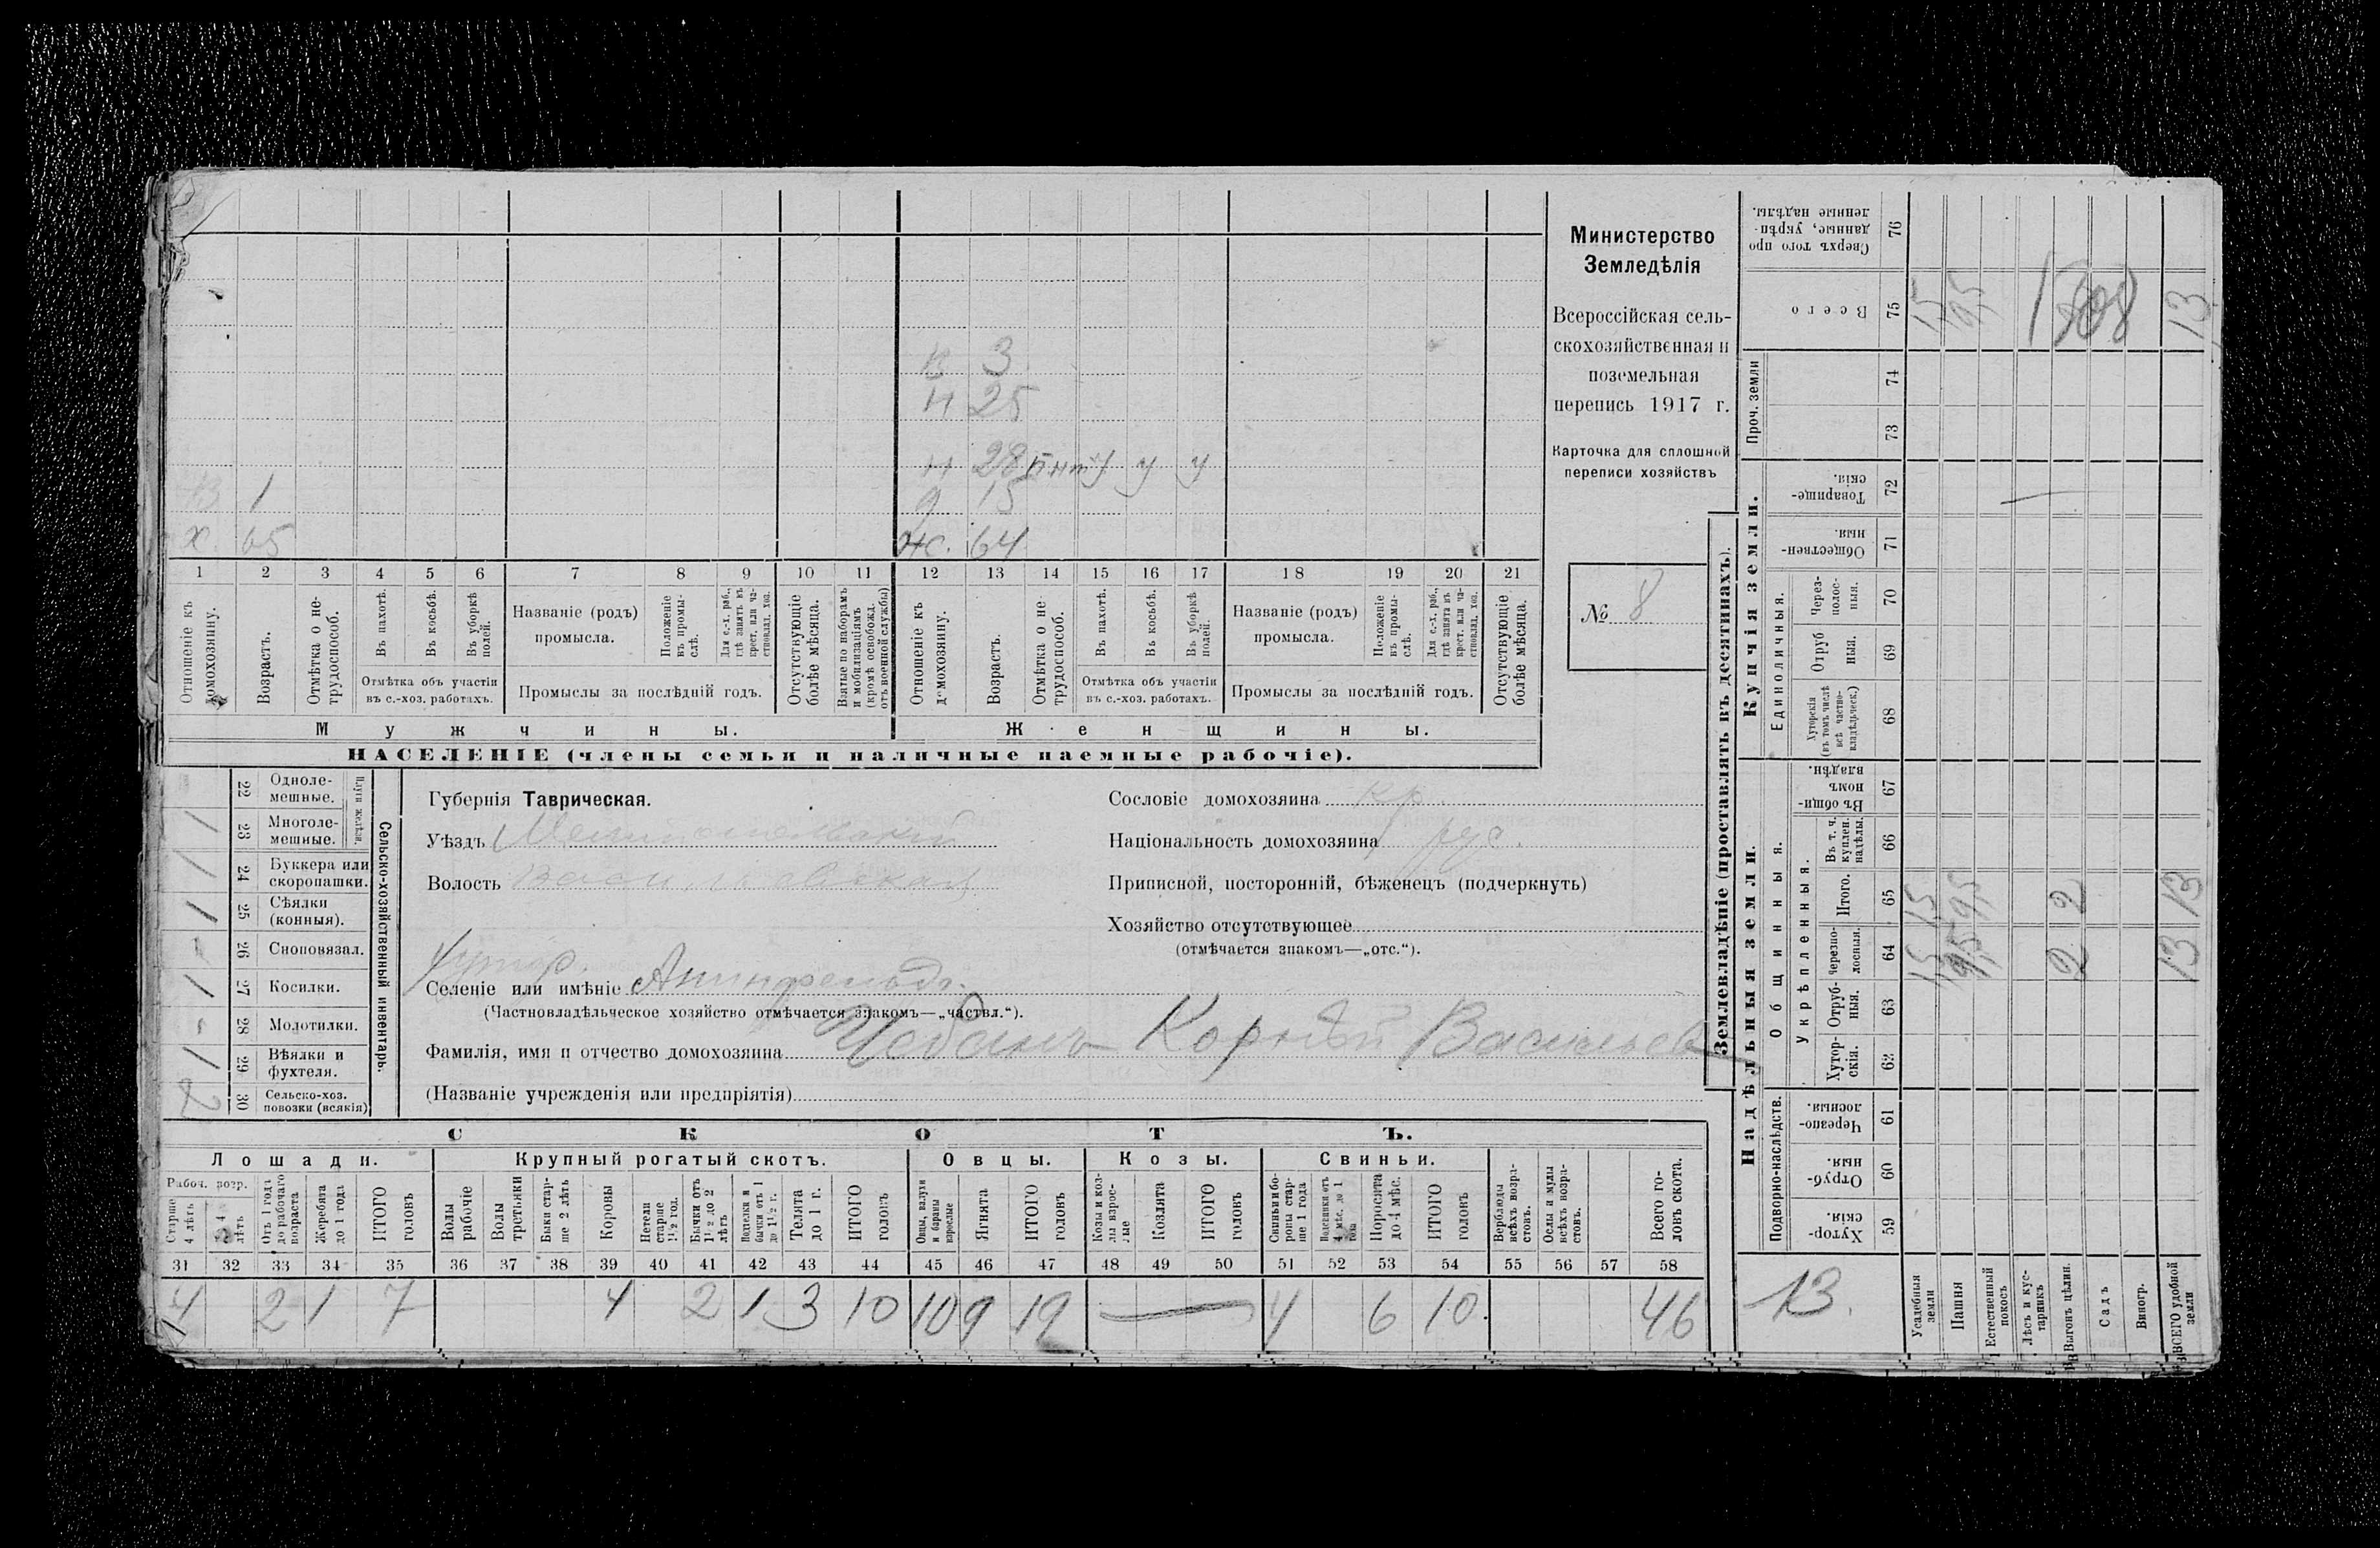 Министерство
Земледѣлія
Всероссійская сель-
скохозяйственная и
поземельная
перепись 1917 г.
Карточка для сплошной
переписи хозяйствъ
№ 8
В 3
Н 25
Н 28 у у
В 1 д 15
х. 65 ж. 64
1 2 3 4 5 6 7 8 9 10 11 12 13 14 15 16 17 18 19 20 21
Отношеніе къ домохозяину.
Возрастъ.
Отмѣтка о не-трудоспособ.
Въ пахотѣ.
Въ косьбѣ.
Въ уборкѣ полей.
Отмѣтка объ участіи
въ с.-хоз. работахъ.
Названіе (родъ)
промысла.
Положеніе въ промы-слѣ.
Для с.-х. раб., гдѣ занятъ въ крест. или ча-стновлад. хоз.
Промыслы за послѣдній годъ.
Отсутствующіе болѣе мѣсяца.
Взятые по наборамъ и мобилизаціямъ (кромѣ освобожд. отъ военной службы)
Отношеніе къ домохозяину.
Возрастъ.
Отмѣтка о не-трудоспособ.
Въ пахотѣ.
Въ косьбѣ.
Въ уборкѣ полей.
Отмѣтка объ участіи
въ с.-хоз. работахъ.
Названіе (родъ)
промысла.
Положеніе въ промы-слѣ.
Для с.-х. раб., гдѣ занята въ крест. или ча-стновлад. хоз.
Промыслы за послѣдній годъ.
Отсутствующіе болѣе мѣсяца.
Мужчины. Женщины.
НАСЕЛЕНІЕ (члены семьи и наличные наемные рабочіе).
Сельско-хозяйственный инвентарь.
Плуги желѣзн.
22 Одноле-мешные.
1 23 Многоле-мешные.
1 24 Буккера или скоропашки.
1 25 Сѣялки (конныя).
- 26 Сноповязал.
1 27 Косилки.
- 28 Молотилки.
1 29 Вѣялки и фухтеля.
2 30 Сельско-хоз. повозки (всякія)
Губернія Таврическая.
Уѣздъ Мелитопольский
Волость
Хутор.
Селеніе или имѣніе
(Частновладѣльческое хозяйство отмѣчается знакомъ—„частвл.“).
Фамилія, имя и отчество домохозяина Чебанъ Корнѣй Васильев
(Названіе учрежденія или предпріятія)
Сословіе домохозяина кр.
Національность домохозяина рус.
Приписной, посторонній, бѣженецъ (подчеркнуть)
Хозяйство отсутствующее
(отмѣчается знакомъ—„отс.“).
СКОТЪ.
Лошади. Крупный рогатый скотъ. Овцы. Козы. Свиньи.
Рабоч. возр.
Старше 4 лѣтъ
До 4 лѣтъ
Отъ 1 года до рабочаго возраста
Жеребята до 1 года
ИТОГО головъ
Волы рабочіе
Волы третьяки
Быки стар-ше 2 лѣтъ
Коровы
Нетели старше 1½ год.
Бычки отъ 1½ до 2 лѣтъ
Подтелки и бычки отъ 1 до 1½ г.
Телята до 1 г.
ИТОГО головъ
Овцы, валухи и бараны взрослые
Ягнята
ИТОГО головъ
Козы и коз-лы взрос-лые
Козлята
ИТОГО головъ
Свиньи и бо-ровы стар-ше 1 года
Подсвинки отъ 4 мѣс. до 1 года
Поросята до 4 мѣс.
ИТОГО головъ
Верблюды всѣхъ возра-стовъ.
Ослы и мулы всѣхъ возра-стовъ.
Всего го-ловъ скота.
31 32 33 34 35 36 37 38 39 40 41 42 43 44 45 46 47 48 49 50 51 52 53 54 55 56 57 58
4 2 1 7 4 2 1 3 10 10 9 19 — 4 6 10. 46
Землевладѣніе (проставлять въ десятинахъ).
Надѣльныя земли.
Купчія земли.
Проч. земли
Подворно-наслѣдств.
Общинныя.
Укрѣпленныя.
Единоличныя.
Хутор-скія. 59
Отруб-ныя. 60
Черезпо-лосныя. 61
Хутор-скія. 62
Отруб-ныя. 63
Черезпо-лосныя. 64
Итого. 65
Въ т. ч. куплен. надѣлы. 66
Въ общи-номъ владѣн. 67
Хуторскія (въ томъ числѣ всѣ частно-владѣльческ.) 68
Отруб ныя. 69
Через-полос-ныя. 70
Обществен-ныя. 71
Товарище-скія. 72
73
74
Всего 75
Сверхъ того про данные, укрѣп-ленные надѣлы. 76
13.
Усадебныя земли 15 15 15
Пашня 95 95 95
Естественный покосъ
Лѣсъ и кус-тарникъ
Выгонъ цѣлин. 2 2
Садъ
Виногр.
ВСЕГО удобной земли 13 13 13